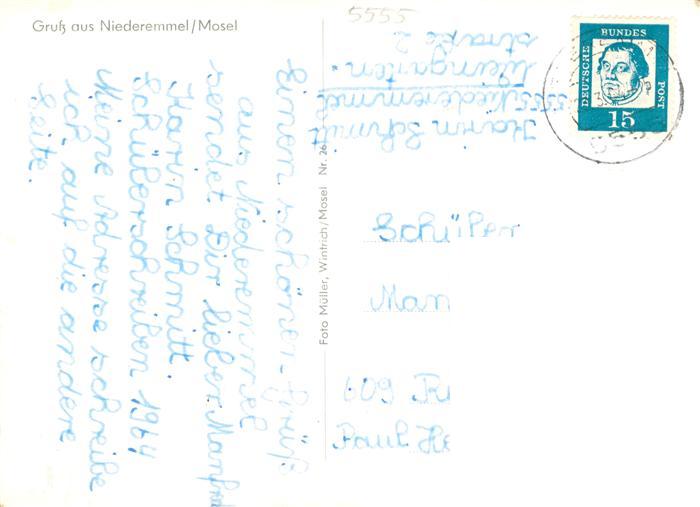 Gruß aus Niederemmel/Mosel
5555
DEUTSCHE
BUNDES
POST
15
Karin Schmitt
5555 Niederemmel
Weingarten-
straße 2
Einen schönen Gruß
aus Niederemmel
sendet Dir lieber Manfred
Karin Schmitt.
Schülerschreiben 1964
Meine Adresse schreibe
ich auf die andere
Seite.
Foto Müller, Wintrich/Mosel Nr. 26
Schüler
Man
609
Paul He